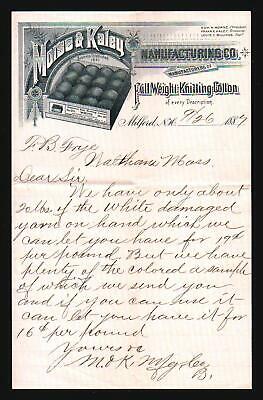 Morse & Kaley
MANUFACTURING CO.
MANUFACTURERS OF
Full Weight Knitting Cotton
of every Description.
Milford, N.H. 9/26 1887
F. B. Frye
Waltham Mass
Dear Sir,
We have only about
lbs of the White damaged
yarn on hand which we
can let you have for 19¢
per pound. But we have
plenty of the colored a sample
of which we send you
and if you can use it
can let you have it for
16¢ per pound
Yours &c
M. & K. Mfg. Co.
B.